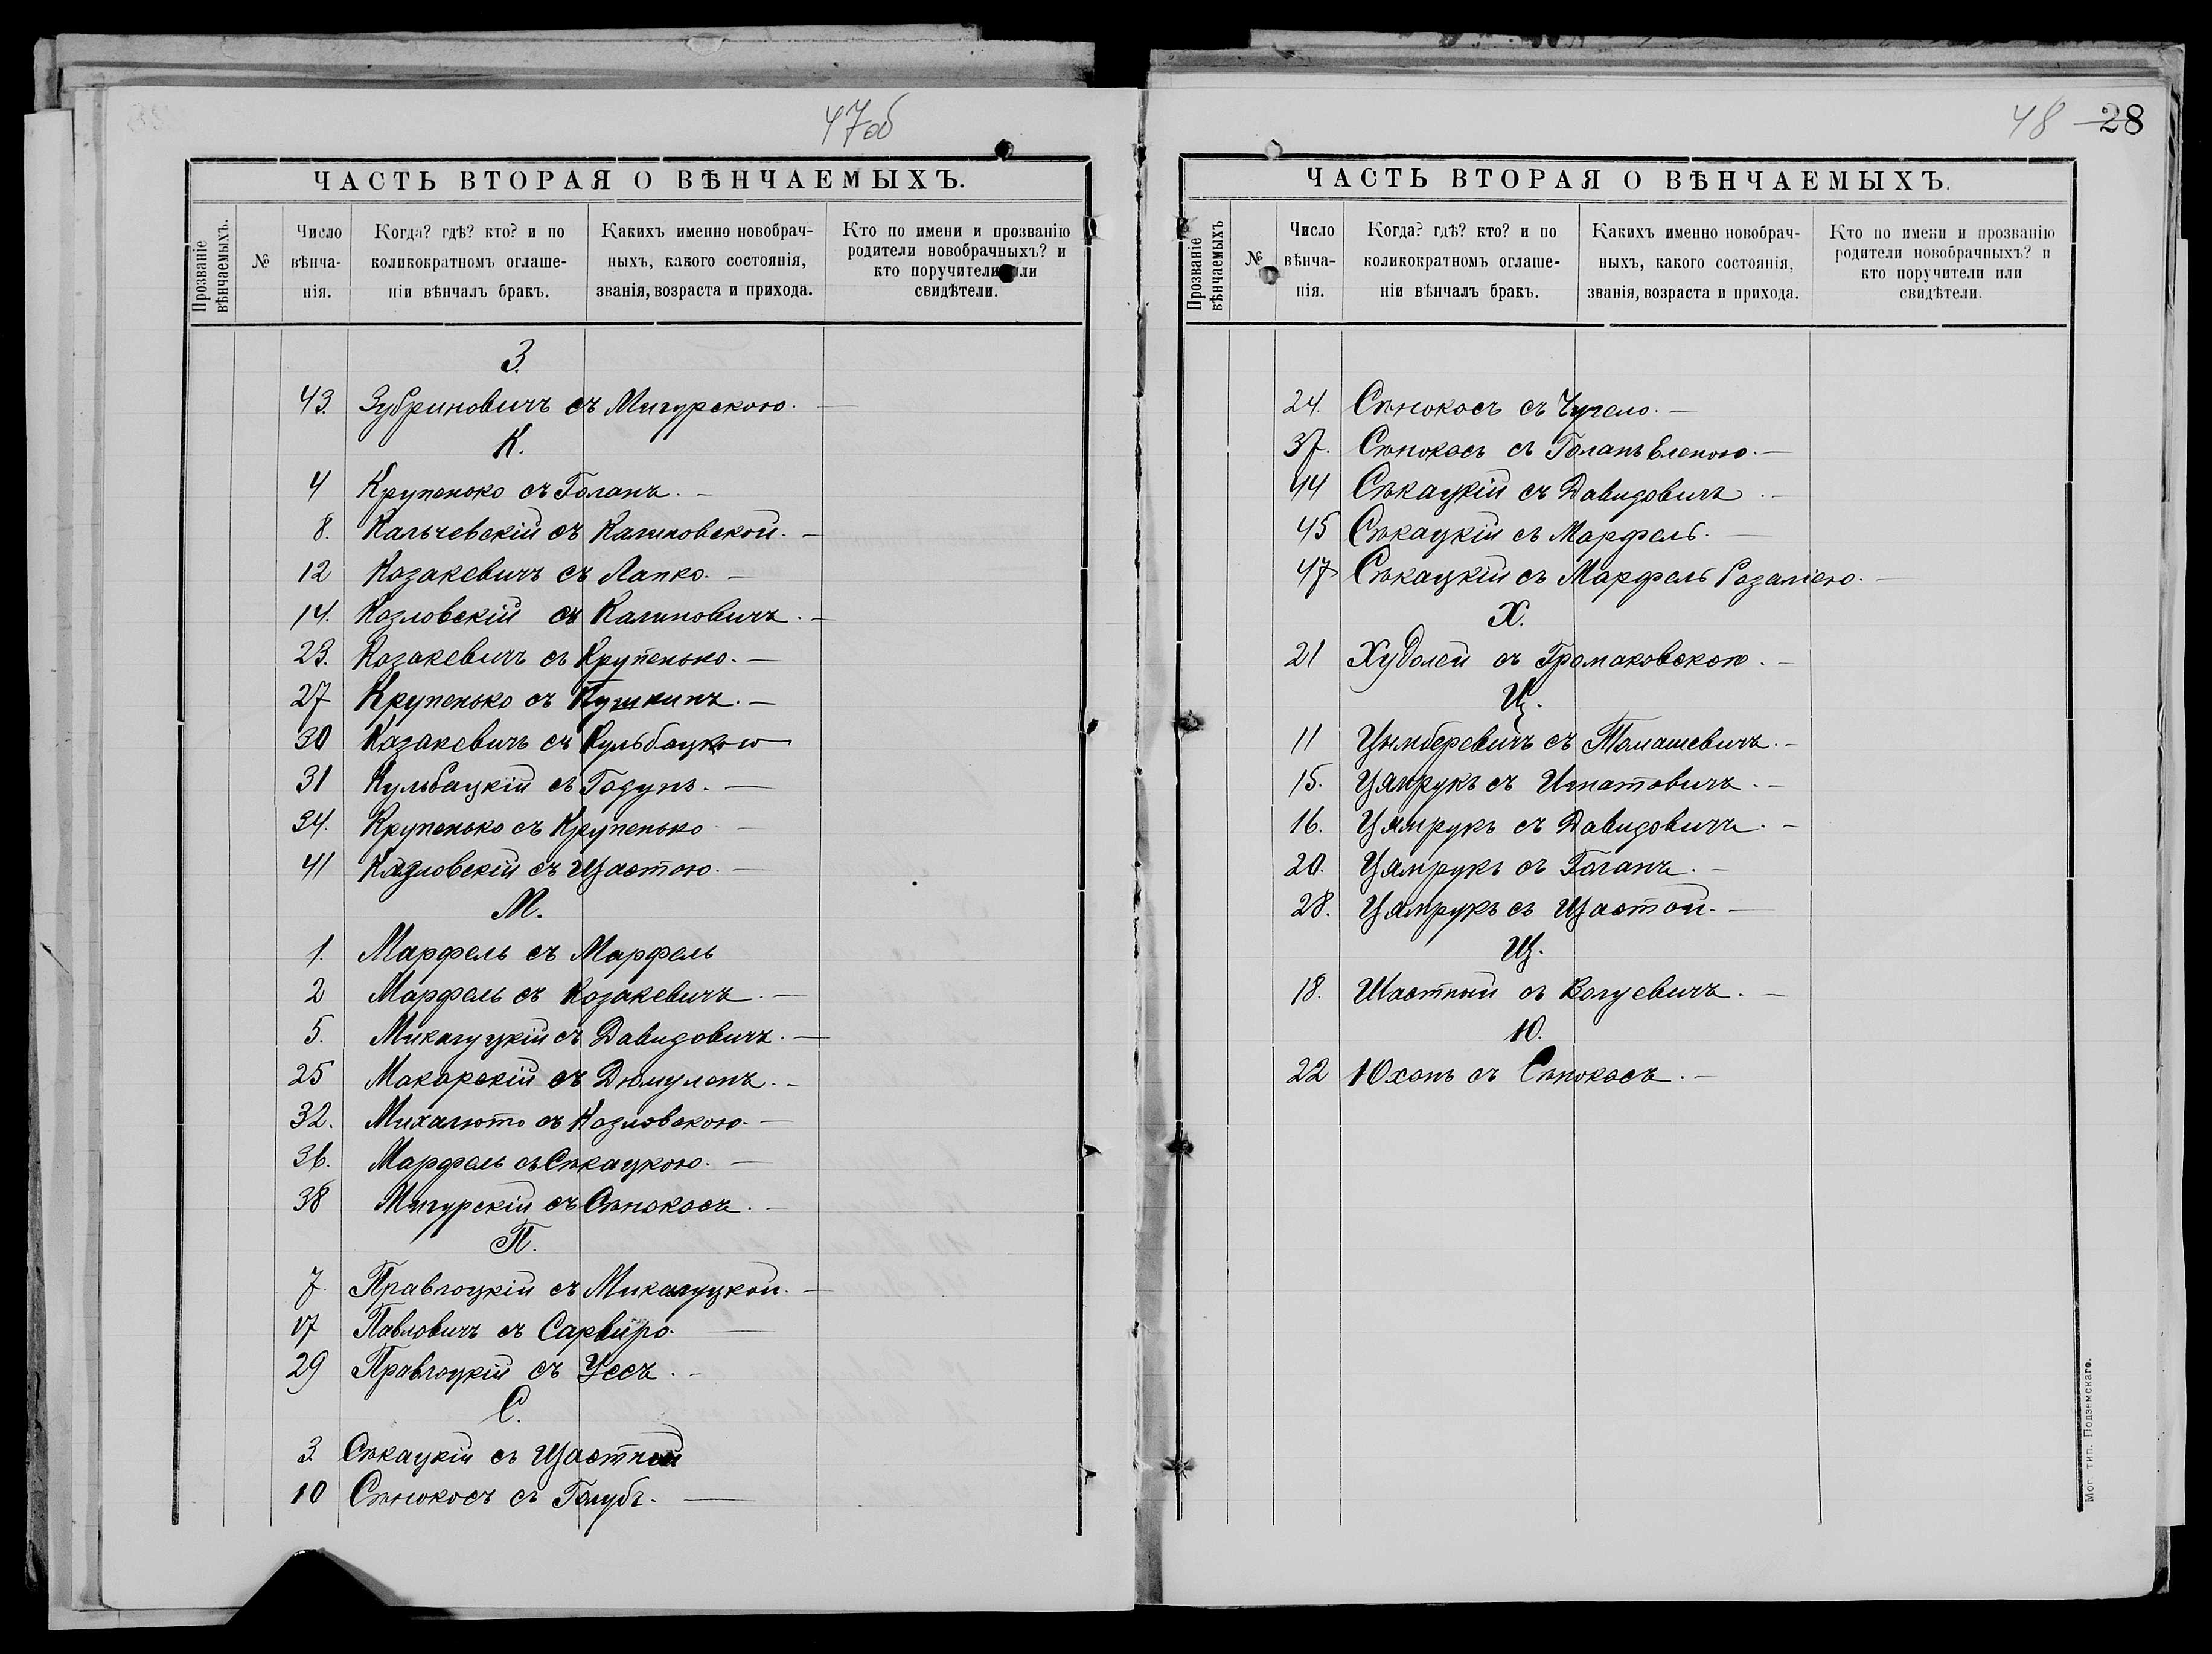 47об
ЧАСТЬ ВТОРАЯ О ВѢНЧАЕМЫХЪ.
Прозваніе вѣнчаемыхъ.
№
Число вѣнча- нія.
Когда? гдѣ? кто? и по коликократномъ оглаше- ніи вѣнчалъ бракъ.
Какихъ именно новобрач- ныхъ, какого состоянія, званія, возраста и прихода.
Кто по имени и прозванію родители новобрачныхъ? и кто поручители или свидѣтели.
З.
43. Зубриновичъ съ Мигурскою. —
К.
4 Крупенько съ Голанъ. —
8. Кальчевскій съ Калиновской. —
12 Козакевичъ съ Лапко. —
14. Козловскій съ Калиновичъ. —
23. Козакевичъ съ Крупенько. —
27 Крупенько съ Пушкинъ. —
30 Казакевичъ съ Кульбацкою
31 Кульбацкій съ Годунъ. —
34. Крупенько съ Крупенько —
41 Казловскій съ Щастою. —
М.
1. Марфель съ Марфель
2 Марфель съ Козакевичъ. —
5. Микалуцкій съ Давидовичъ. —
25 Макарскій съ Дюмуленъ. —
32. Михалюто съ Козловскою. —
36. Марфель съ Сѣкацкою. —
38 Мигурскій съ Сѣнокосъ. —
П.
7. Правлоцкій съ Микалуцкой. —
17 Павловичъ съ Сарвиро. —
29 Правлоцкій съ Усъ. —
С.
3. Сѣкацкій съ Щастной
10 Сѣнокосъ съ Голубъ. —
48 28
ЧАСТЬ ВТОРАЯ О ВѢНЧАЕМЫХЪ.
Прозваніе вѣнчаемыхъ
№
Число вѣнча- нія.
Когда? гдѣ? кто? и по коликократномъ оглаше- ніи вѣнчалъ бракъ.
Какихъ именно новобрач- ныхъ, какого состоянія, званія, возраста и прихода.
Кто по имени и прозванію родители новобрачныхъ? и кто поручители или свидѣтели.
24. Сѣнокосъ съ Чучело. —
37. Сѣнокосъ съ Голанъ Еленою. —
44 Сѣкацкій съ Давидовичъ. —
45 Сѣкацкій съ Марфель. —
47 Сѣкацкій съ Марфель Розаліею. —
Х.
21 Худолей съ Громаковскою. —
Ц.
11 Цымберевичъ съ Томашевичъ. —
15. Цямрукъ съ Игнатовичъ. —
16. Цямрукъ съ Давидовичъ. —
20. Цямрукъ съ Голанъ. —
28. Цямрукъ съ Щастой. —
Щ.
18. Щастный съ Волуевичъ. —
Ю.
22 Юханъ съ Сѣнокосъ. —
Мог. тип. Подземскаго.